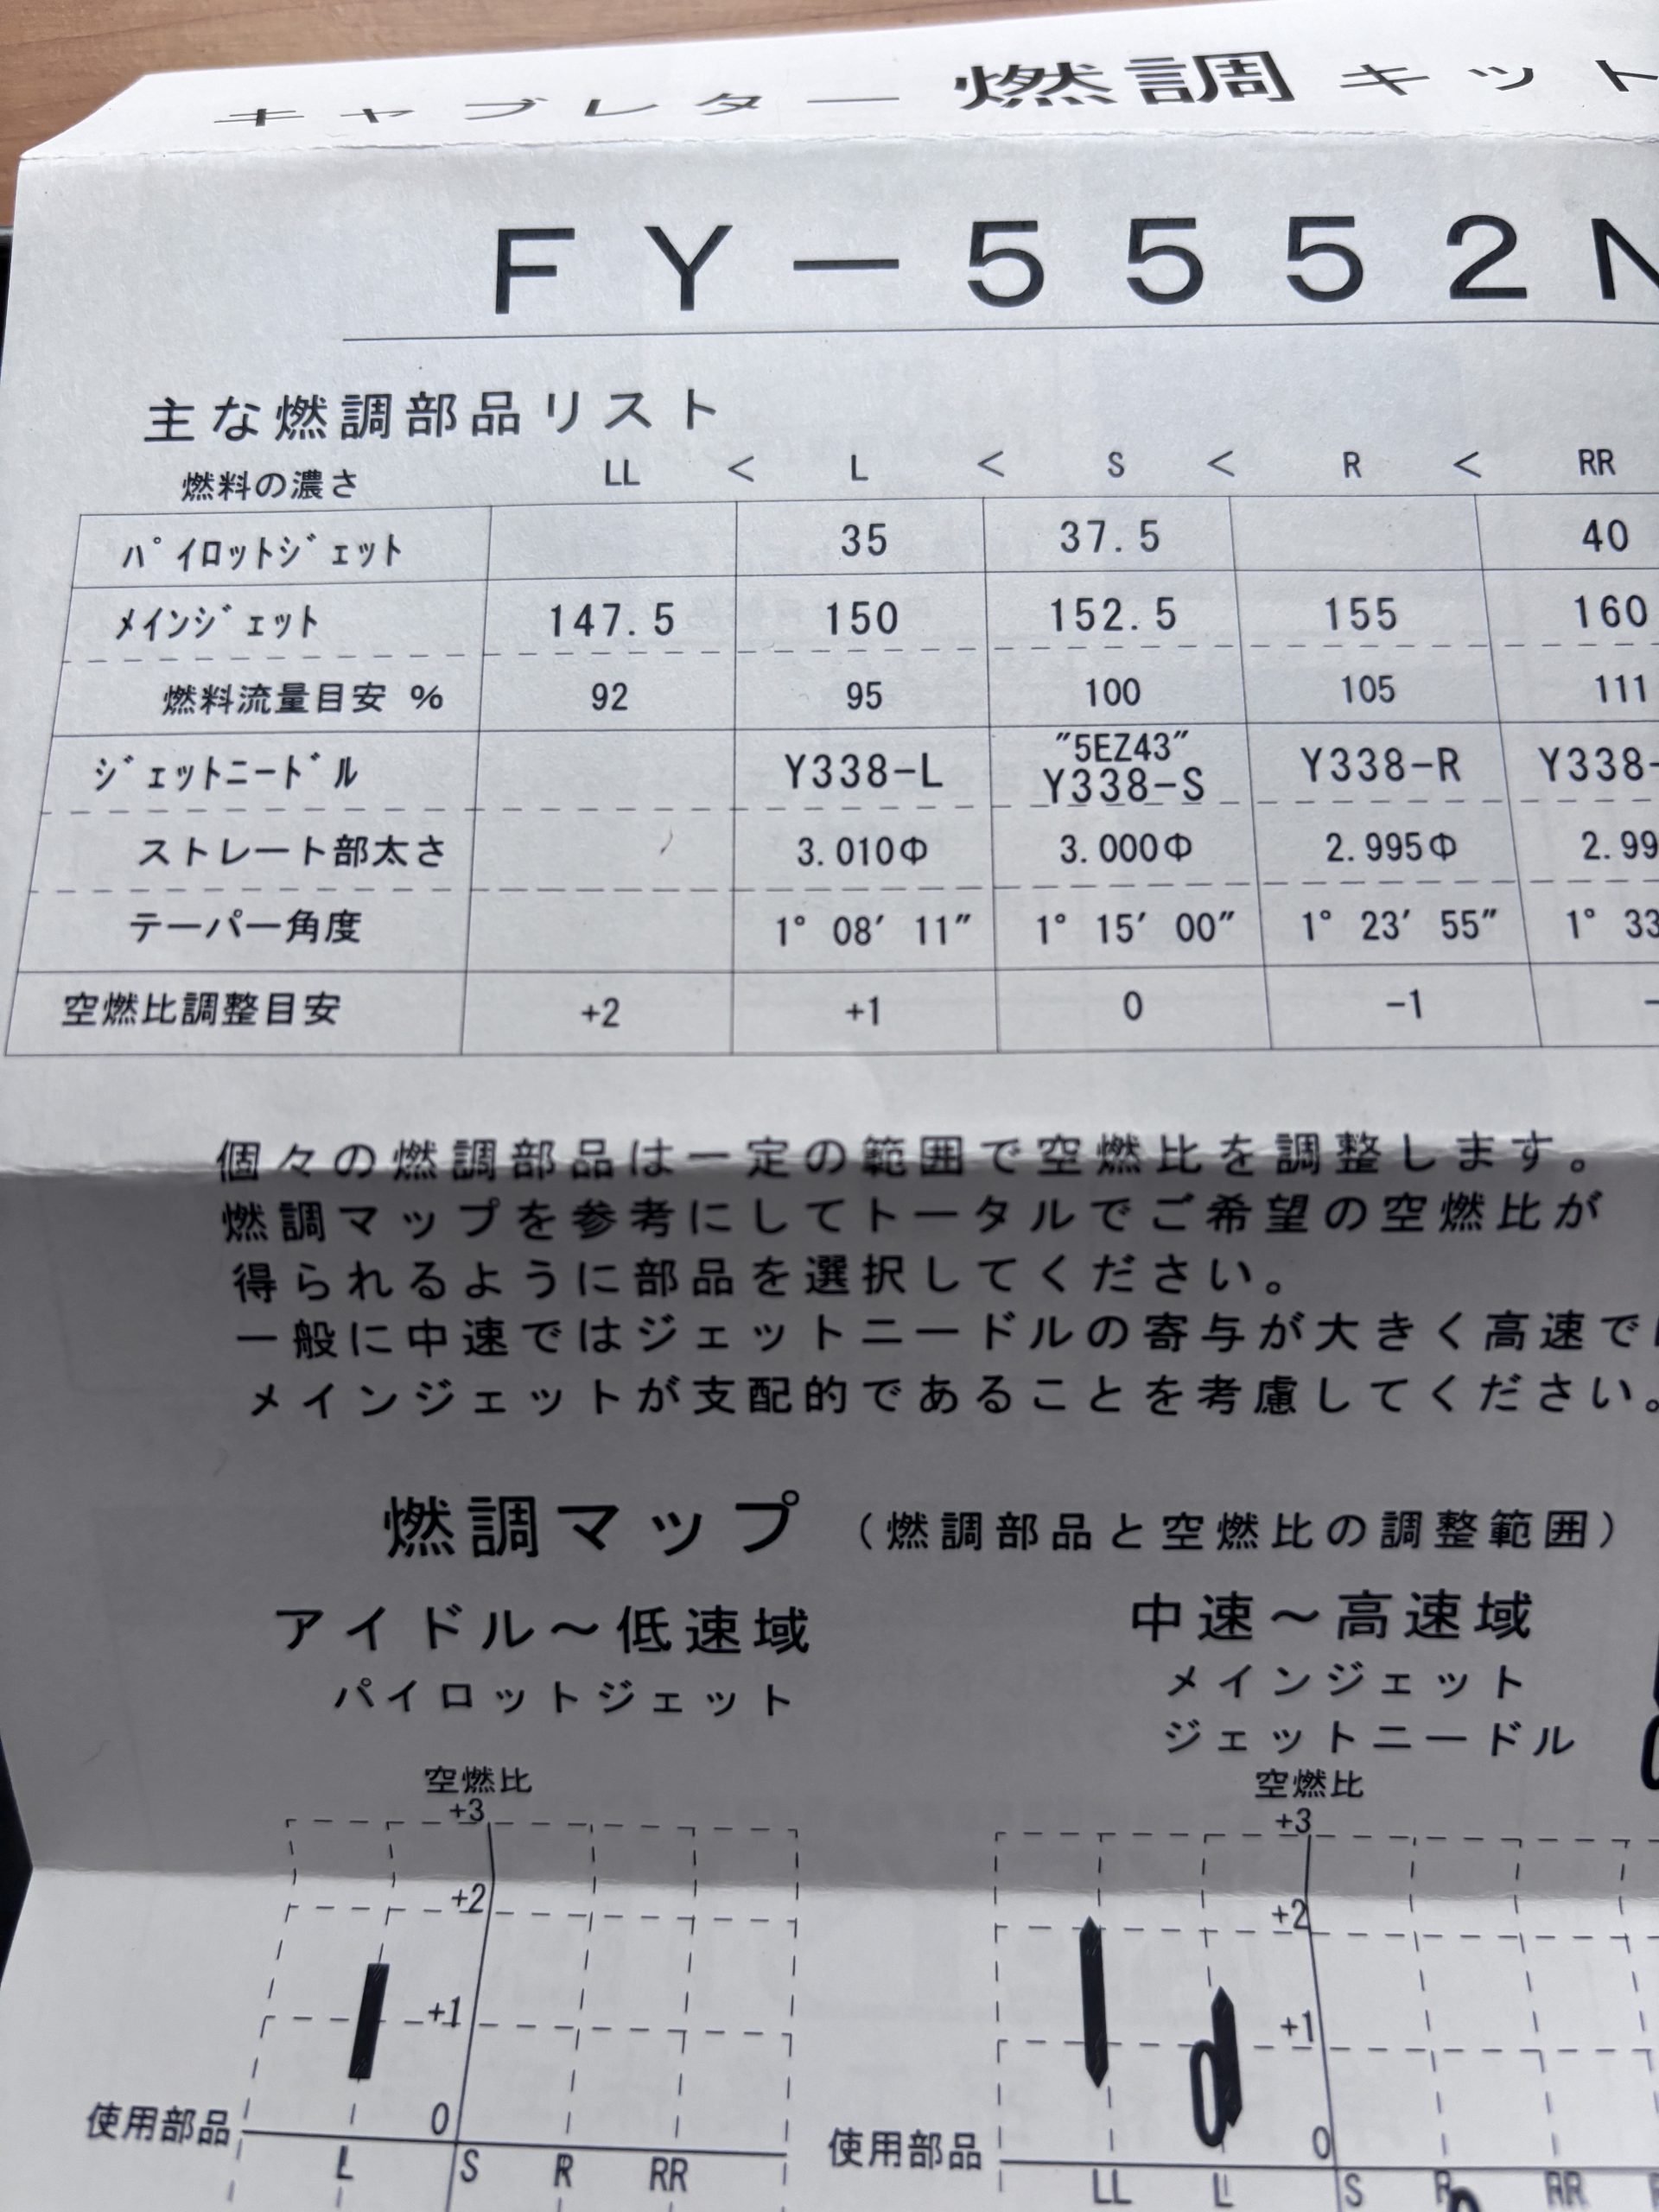 キャブレター燃調キット
FY-5552N
主な燃調部品リスト
燃料の濃さ LL < L < S < R < RR
ﾊﾟｲﾛｯﾄｼﾞｪｯﾄ 35 37.5 40
ﾒｲﾝｼﾞｪｯﾄ 147.5 150 152.5 155 160
燃料流量目安 % 92 95 100 105 111
ｼﾞｪｯﾄﾆｰﾄﾞﾙ Y338-L "5EZ43" Y338-S Y338-R Y338-
ストレート部太さ 3.010Φ 3.000Φ 2.995Φ 2.99
テーパー角度 1° 08′ 11″ 1° 15′ 00″ 1° 23′ 55″ 1° 33
空燃比調整目安 +2 +1 0 -1 -
個々の燃調部品は一定の範囲で空燃比を調整します。
燃調マップを参考にしてトータルでご希望の空燃比が
得られるように部品を選択してください。
一般に中速ではジェットニードルの寄与が大きく高速で
メインジェットが支配的であることを考慮してください。
燃調マップ (燃調部品と空燃比の調整範囲)
アイドル～低速域
パイロットジェット
空燃比
+3
+2
+1
0
使用部品
L S R RR
中速～高速域
メインジェット
ジェットニードル
空燃比
+3
+2
+1
0
使用部品
LL L S R RR